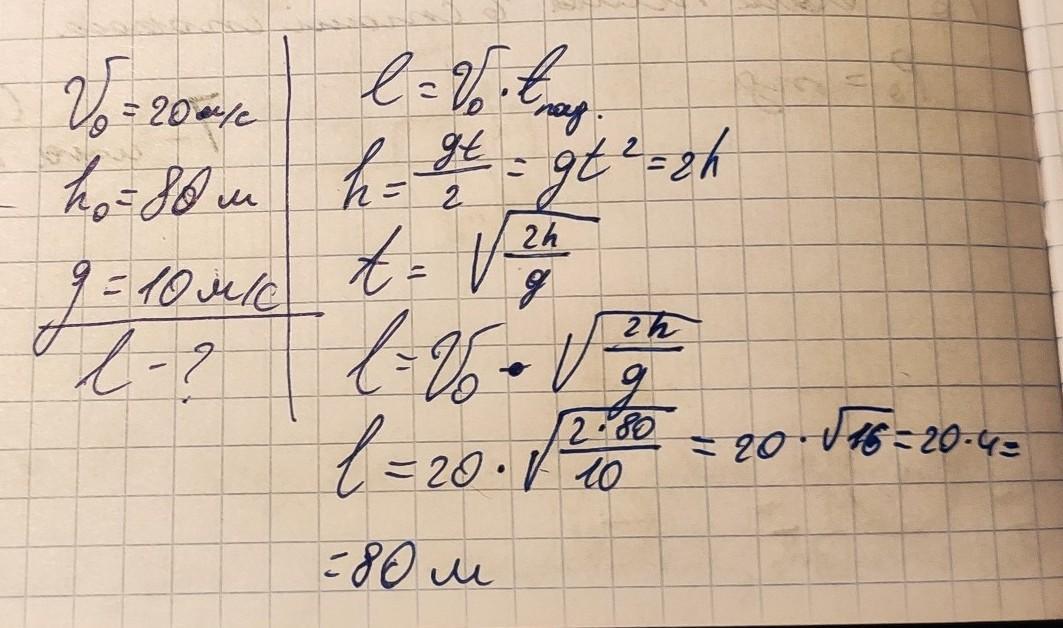 V₀ = 20 м/с
h₀ = 80 м
g = 10 м/с
l - ?
l = V₀ · t пад.
h = gt/2 = gt² = 2h
t = √(2h/g)
l = V₀ · √(2h/g)
l = 20 · √(2·80/10) = 20 · √16 = 20·4 =
= 80 м